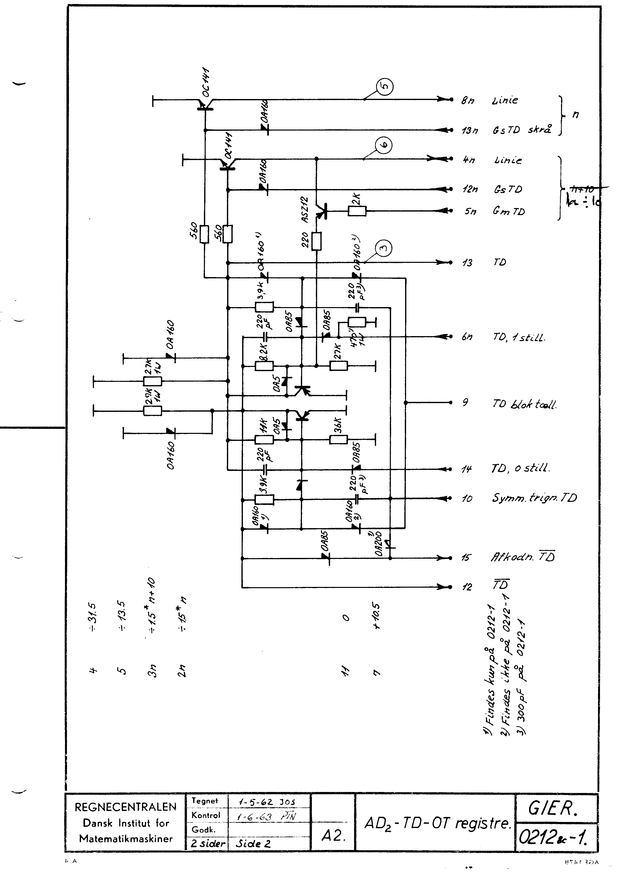 OC141
5
8n Linie
OA160
13n GsTD skrå
n
OC141
6
4n Linie
OA160
12n GsTD
ASZ12
2K
5n GmTD
560
560
220
3
13 TD
OA160 1)
OA160 2)
3,9K
220 pF 3)
OA85
OA85
220 pF
470 1W
6n TD, 1 still.
OA160
8.2K
27K
27K 1W
OA5
9 TD blok tæll.
OA5
OA160
36K
220 pF
OA85
14 TD, 0 still.
3.9K
220 pF 3)
10 Symm. trign. TD
OA160 1)
OA160 2)
OA200
OA85
15 Afkodn. TD
12 TD
4 ÷31.5
5 ÷13.5
3n ÷1.5*n+10
2n ÷15*n
11 0
7 +10.5
1) Findes kun på 0212-1
2) Findes ikke på 0212-1
3) 300 pF på 0212-1
REGNECENTRALEN
Dansk Institut for
Matematikmaskiner
Tegnet 1-5-62 JOS
Kontrol 1-6-63
Godk.
2 sider Side 2
A2.
AD2-TD-OT registre.
GIER.